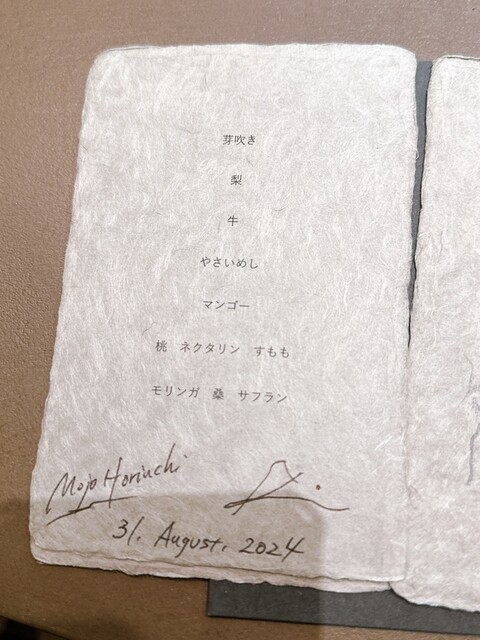 芽吹き
梨
牛
やさいめし
マンゴー
桃　ネクタリン　すもも
モリンガ　桑　サフラン
Mojo Horiuchi
31. August. 2024